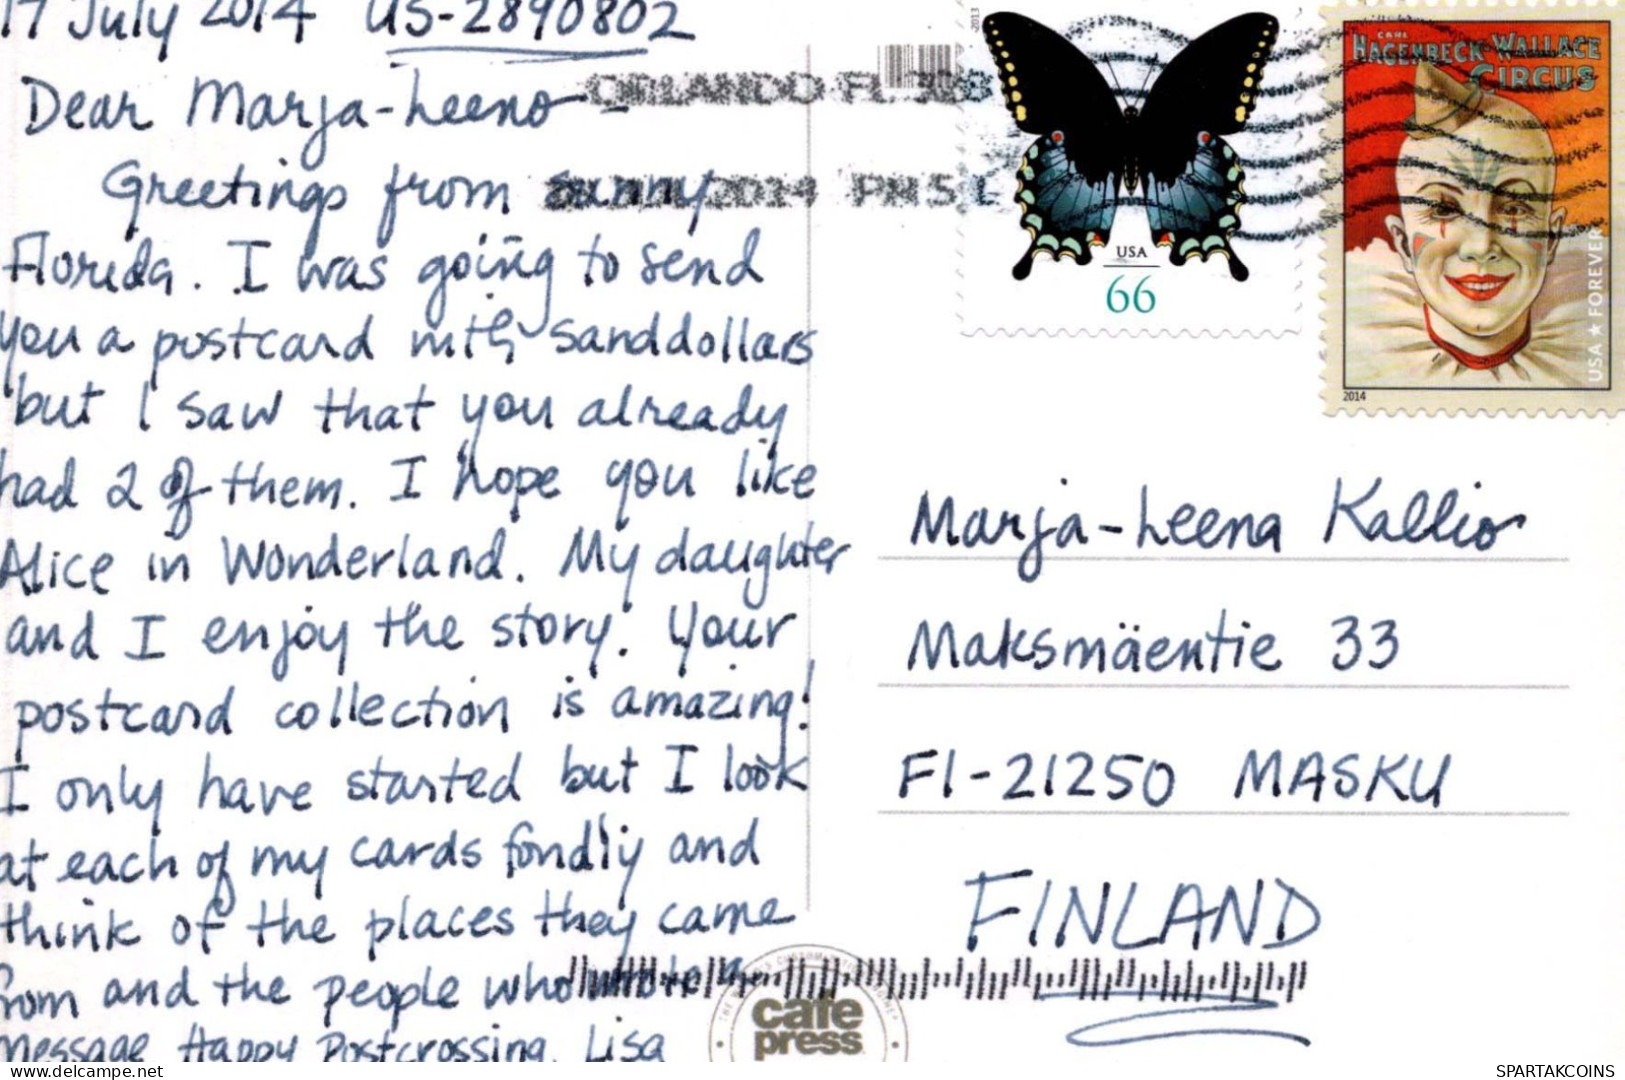 17 July 2014 US-2890802
Dear Marja-Leena -
Greetings from sunny
Florida. I was going to send
you a postcard with sanddollars
but I saw that you already
had 2 of them. I hope you like
Alice in Wonderland. My daughter
and I enjoy the story. Your
postcard collection is amazing!
I only have started but I look
at each of my cards fondly and
think of the places they came
from and the people who wrote a
message. Happy Postcrossing. Lisa
ORLANDO FL 328
2014 PM 5 L
2013
USA
66
CARL
HAGENBECK-WALLACE
CIRCUS
USA ★ FOREVER
2014
Marja-Leena Kallio
Maksmäentie 33
FI-21250 MASKU
FINLAND
cafe
press
delcampe.net
SPARTAKCOINS